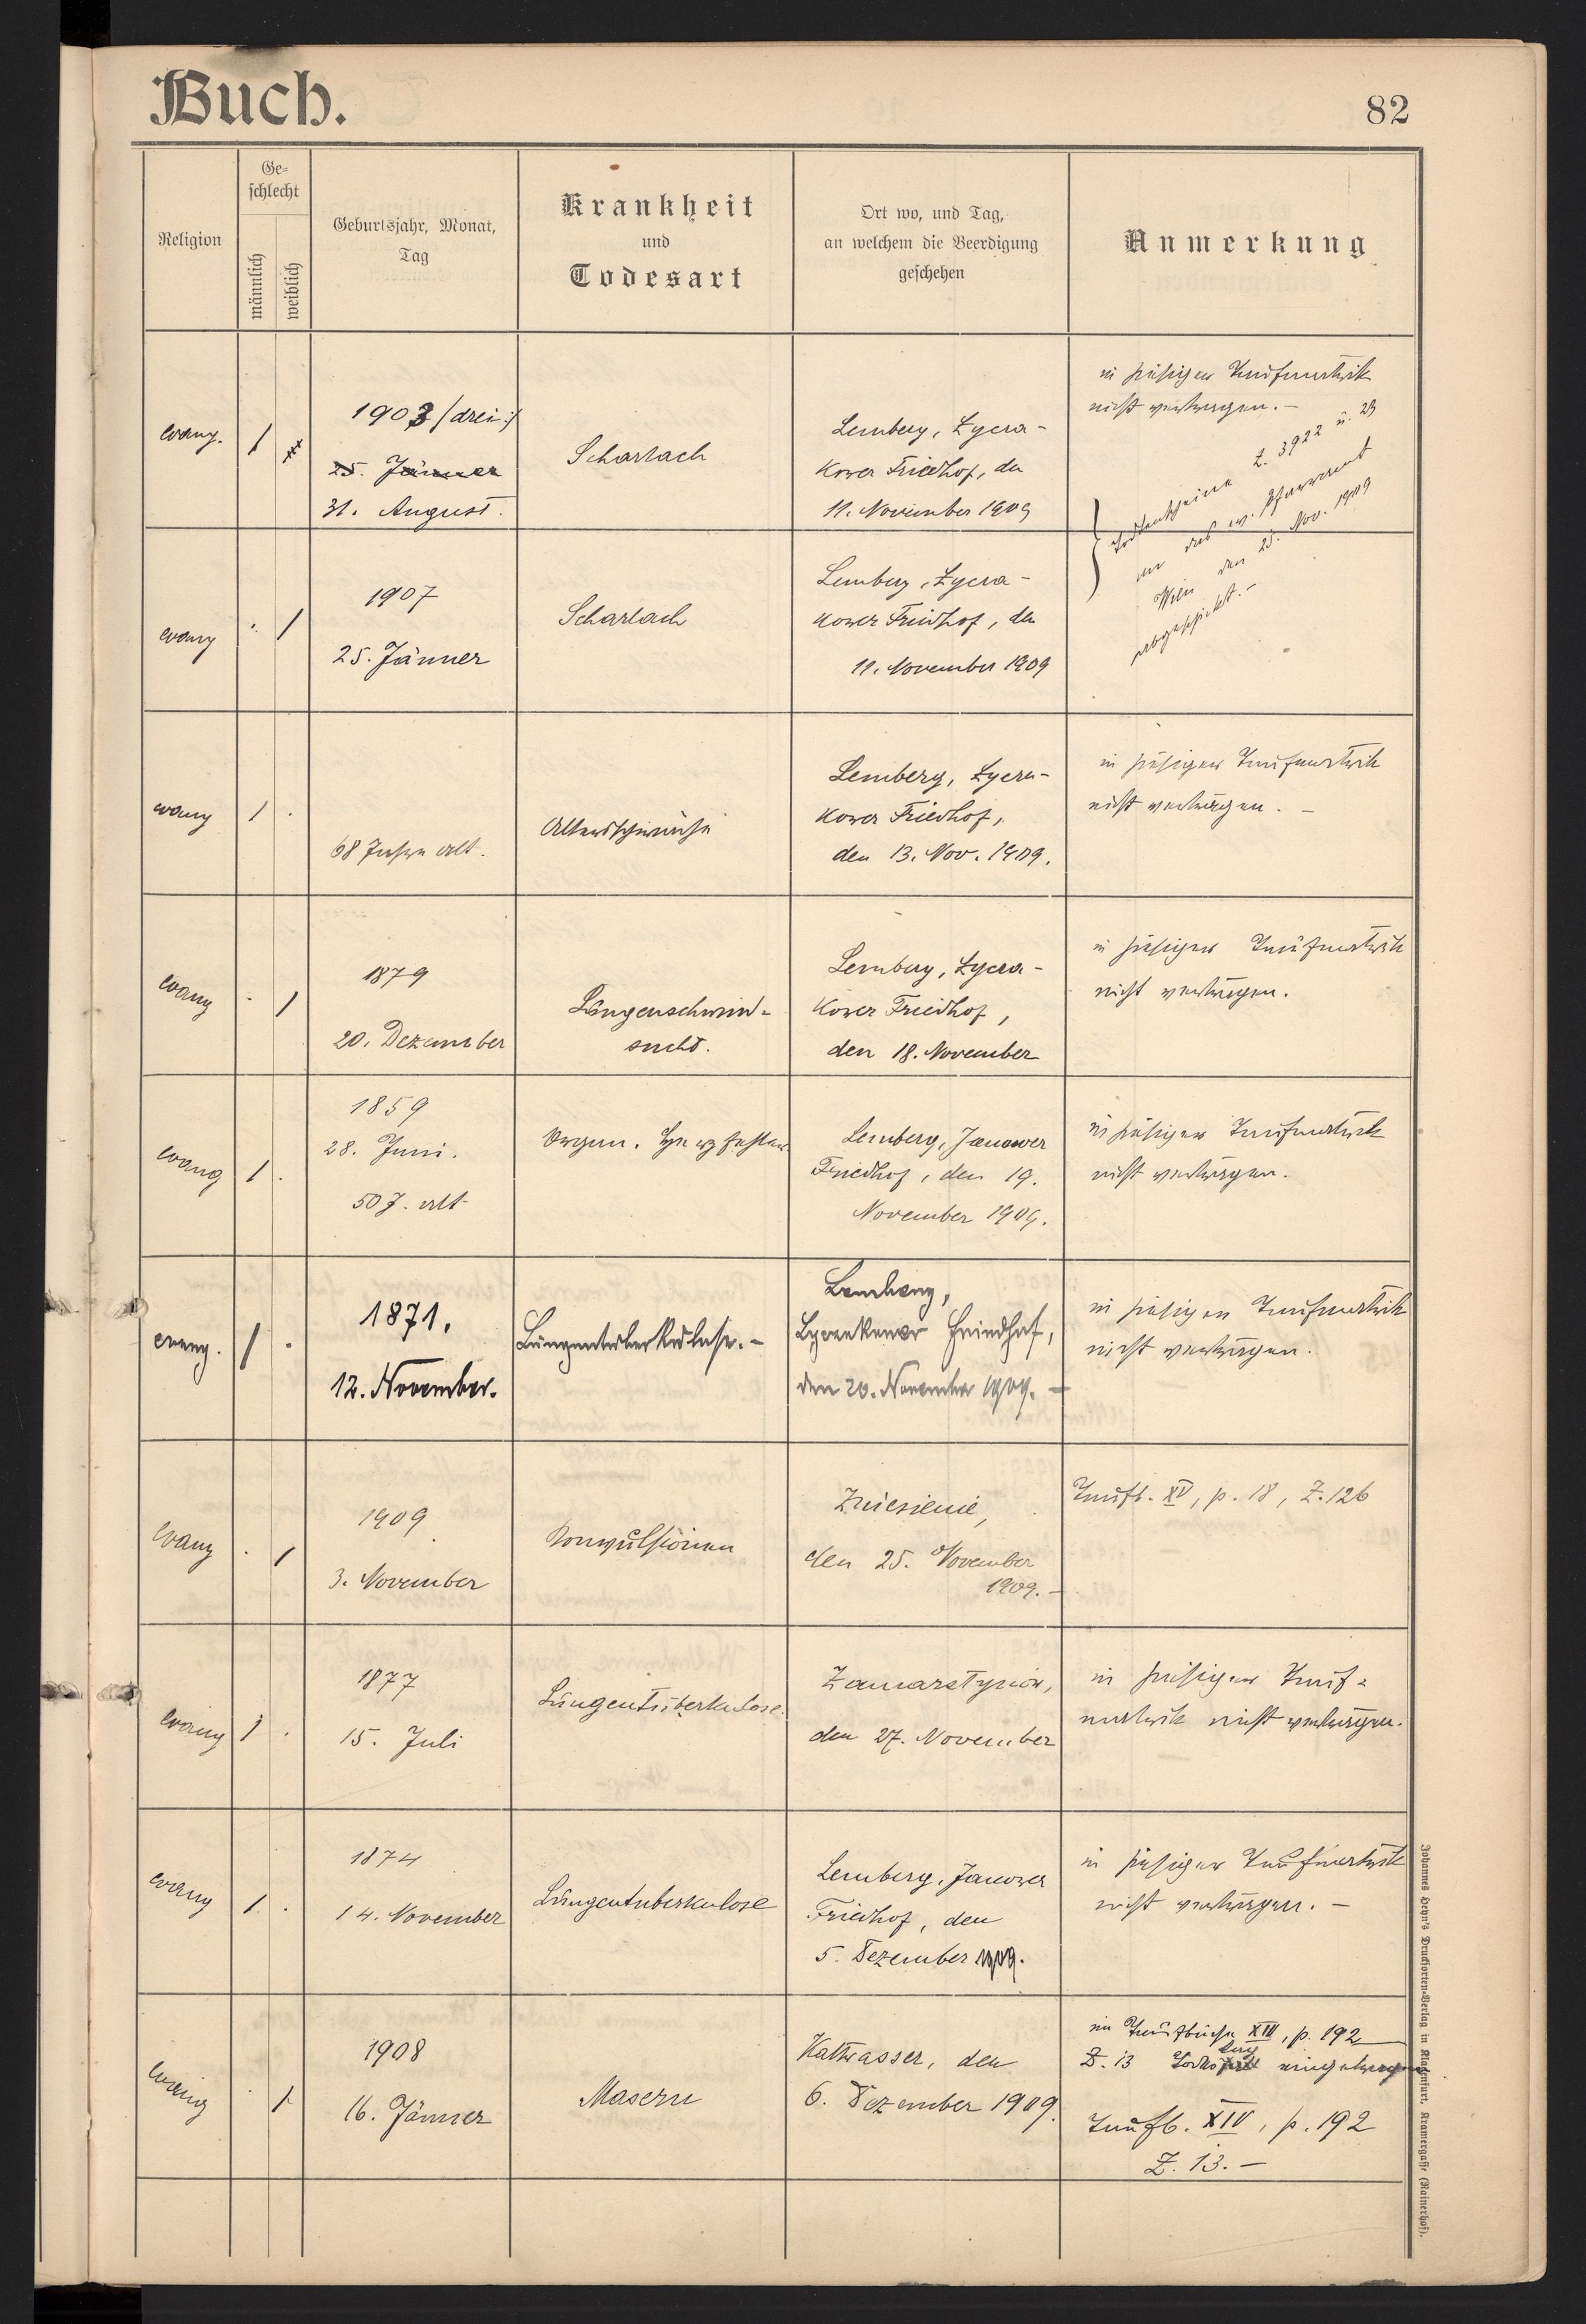 Buch.
82
Religion
Ge-
schlecht
männlich
weiblich
Geburtsjahr, Monat,
Tag
Krankheit
und
Todesart
Ort wo, und Tag,
an welchem die Beerdigung
geschehen
Anmerkung
evang.
1903 /drei:/
25. Jänner
31. August.
Scharlach
Lemberg, Lycza-
kower Friedhof, den
11. November 1909
in hiesiger Taufmatrik
nicht vertragen. -
Todtenscheine Z. 3922 u. 23
an das ev. Pfarramt
Wien den 25. Nov. 1909
abgeschickt. -
evang
1907
25. Jänner
Scharlach
Lemberg, Lycza-
kower Friedhof, den
11. November 1909
evang
68 Jahre alt.
Altersschwäche
Lemberg, Lycza-
kower Friedhof,
den 13. Nov. 1909.
in hiesiger Taufmatrik
nicht vertragen. -
evang
1879
20. Dezember
Lungenschwind-
sucht.
Lemberg, Lycza-
kower Friedhof,
den 18. November
in hiesiger Taufmatrik
nicht vertragen.
evang
1859
28. Juni.
50 J. alt
Organ. Herzfehler
Lemberg, Janower
Friedhof, den 19.
November 1909.
in hiesiger Taufmatrik
nicht vertragen.
evang.
1871.
12. November.
Lungentuberkulose. -
Lemberg,
Lyczakower Friedhof,
den 20. November 1909. -
in hiesiger Taufmatrik
nicht vertragen.
evang
1909
3. November
Konvulsionen
Zniesienie,
den 25. November
1909. -
Taufb. XV, p. 18, Z. 126
evang
1877
15. Juli
Lungentuberkulose.
Zamarstynów,
den 27. November
in hiesiger Tauf-
matrik nicht vertragen.
evang
1874
14. November
Lungentuberkulose
Lemberg, Janower
Friedhof, den
5. Dezember 1909.
in hiesiger Taufmatrik
nicht vertragen. -
evang
1908
16. Jänner
Masern
Kaltwasser, den
6. Dezember 1909.
im Taufbuche XIII, p. 192
Z. 13 eingetragen
Taufb. XIV, p. 192
Z. 13. -
Johannes Heyn's Drucksorten-Verlag in Klagenfurt, Kramergasse (Rainerhof).